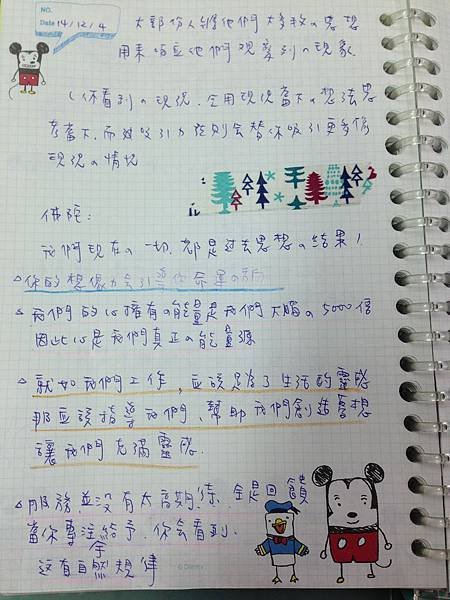 NO.
Date 14/12/4
大部份人將他們大多數の思想
用來回應他們觀察到の現象
(你看到の現況,會用現況當下の想法思
考當下,而被吸引力法則会替你吸引更多你
現況の情況
佛陀:
我們現在の一切,都是过去思想の結果!
△你的想像力会引導你命運の方向
△我們的心擁有の能量是我們大腦の5000倍
因此心是我們真正の能量源
△就如我們工作,應該是為了生活的靈感
那应該指導我們、幫助我們創造夢想
讓我們充滿靈感.
△服務並没有太高期待,全是回饋
當你專注給予,你会看到.
这有自然規律
全
© Disney